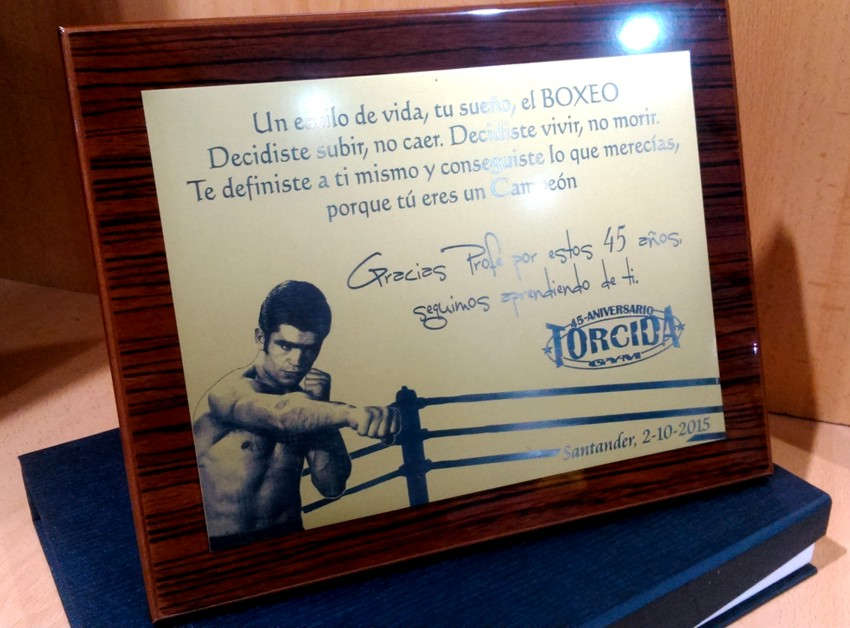 Un estilo de vida, tu sueño, el BOXEO
Decidiste subir, no caer. Decidiste vivir, no morir.
Te definiste a ti mismo y conseguiste lo que merecías,
porque tú eres un Campeón
Gracias Profe por estos 45 años,
seguimos aprendiendo de ti.
45-ANIVERSARIO
TORCIDA
GYM
Santander, 2-10-2015